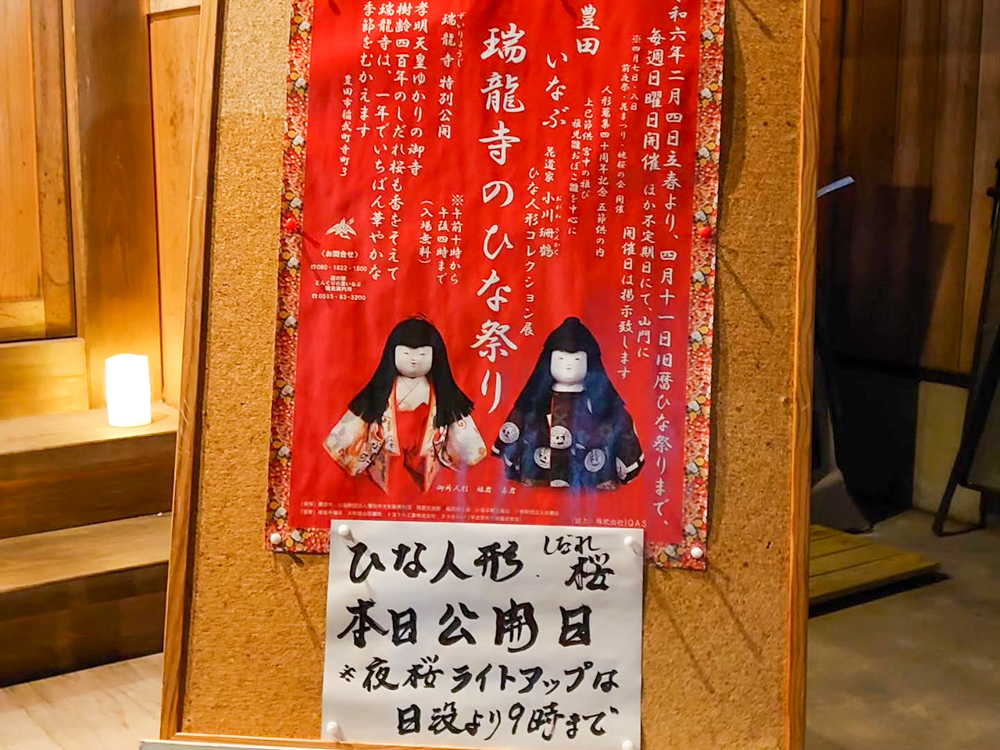 和六年二月四日立春より、四月十一日旧暦ひな祭りまで、
毎週日曜日開催 ほか不定期日にて、山門に
開催日は掲示致します
※四月七日・八日
前夜祭・花まつり・姥桜の会 開催
人形蒐集四十周年記念 五節供の内
上巳節供 宮中の雅び
祖児雛おぼこ雛を中心に
豊田
いなぶ
花道家 小川珊鶴
ひな人形コレクション展
瑞龍寺のひな祭り
※午前十時から
午後四時まで
(入場無料)
ずいりょうじ
瑞龍寺 特別公開
孝明天皇ゆかりの御寺
樹齢四百年のしだれ桜も香をそえて
瑞龍寺は、一年でいちばん華やかな
季節をむかえます
豊田市稲武町寺町3
〈お問合せ〉
☎090-1822-1500
道の駅
どんぐりの里いなぶ
観光案内所
☎0565-83-3200
御所人形 姫君 若君
協力 株式会社IQAS
ひな人形 しだれ桜
本日公開日
※夜桜ライトアップは
日没より9時まで